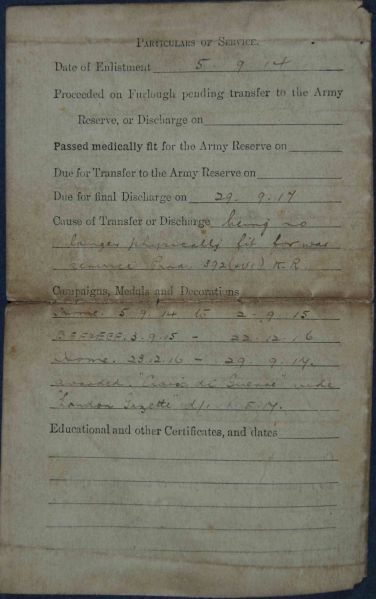 PARTICULARS OF SERVICE.
Date of Enlistment 5 . 9 . 14
Proceeded on Furlough pending transfer to the Army
Reserve, or Discharge on
Passed medically fit for the Army Reserve on
Due for Transfer to the Army Reserve on
Due for final Discharge on 29 . 9 . 17
Cause of Transfer or Discharge being no
longer physically fit for war
service Para. 392(xvi) K.R.
Campaigns, Medals and Decorations
Home. 5.9.14 to 2.9.15
3.9.15 - 22.12.16
Home. 23.12.16 - 29.9.17.
awarded "Croix de Guerre" vide
"London Gazette" d/
Educational and other Certificates, and dates